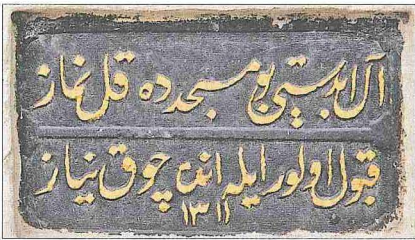 آل ابدستی بو مسجدده قل نماز
قبول اولور ایله انده چوق نیاز
١٣١١